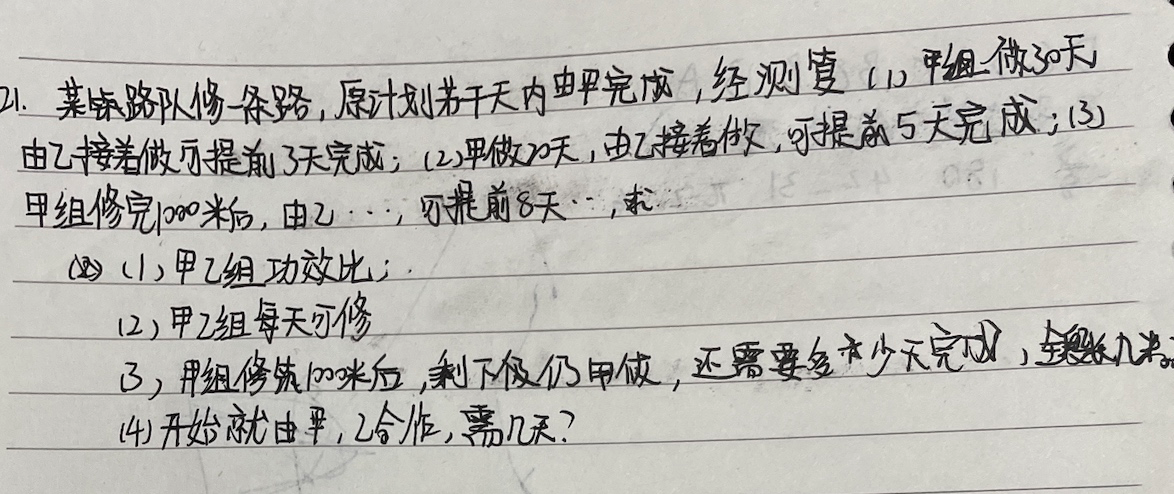 21. 某铁路队修一条路,原计划若干天内由甲完成,经测算(1)甲组做30天
由乙接着做可提前3天完成;(2)甲做20天,由乙接着做,可提前5天完成;(3)
甲组修完1000米后,由乙…,可提前8天…,求
(1)甲乙组功效比;
(2)甲乙组每天可修
3)甲组修筑1000米后,剩下仍甲做,还需要多少天完成,全长几米
(4)开始就由甲,乙合作,需几天?